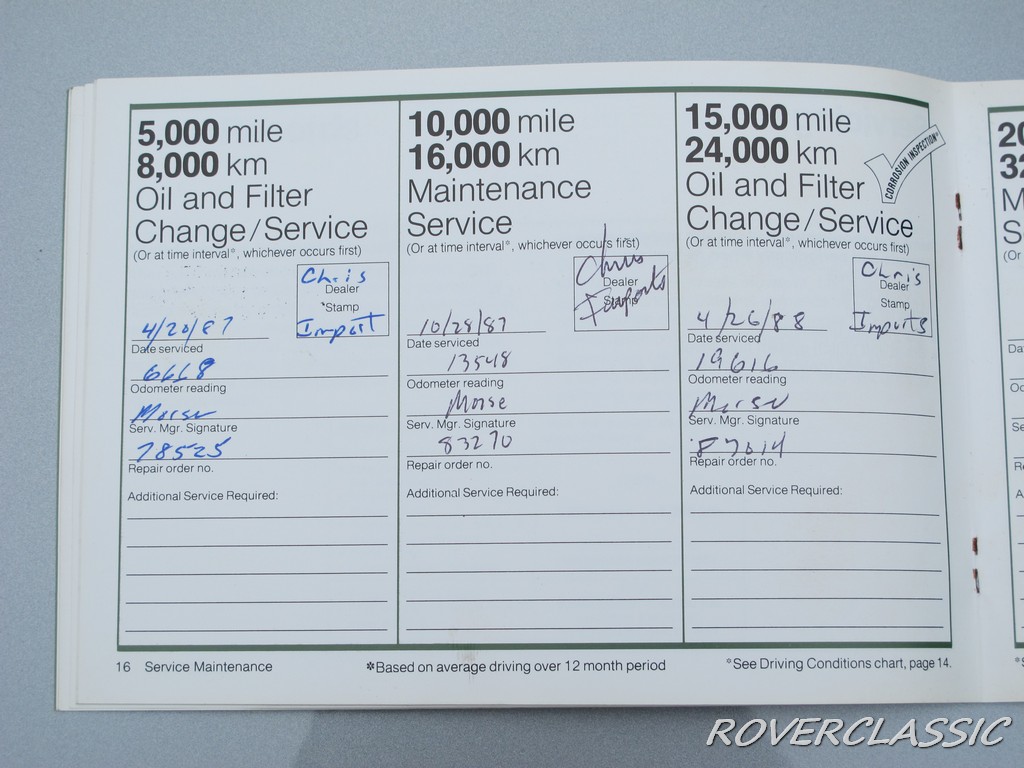 5,000 mile
8,000 km
Oil and Filter
Change/Service
(Or at time interval*, whichever occurs first)
Chris
Dealer
Stamp
Import
4/20/87
Date serviced
6668
Odometer reading
Morse
Serv. Mgr. Signature
78525
Repair order no.
Additional Service Required:
10,000 mile
16,000 km
Maintenance
Service
(Or at time interval*, whichever occurs first)
Chris
Dealer
Stamp
Imports
10/28/87
Date serviced
13548
Odometer reading
Morse
Serv. Mgr. Signature
83270
Repair order no.
Additional Service Required:
15,000 mile
24,000 km
CORROSION INSPECTION*
Oil and Filter
Change/Service
(Or at time interval*, whichever occurs first)
Chris
Dealer
Stamp
Imports
4/26/88
Date serviced
19616
Odometer reading
Morse
Serv. Mgr. Signature
Repair order no.
Additional Service Required:
16 Service Maintenance
*Based on average driving over 12 month period
*See Driving Conditions chart, page 14.
ROVERCLASSIC